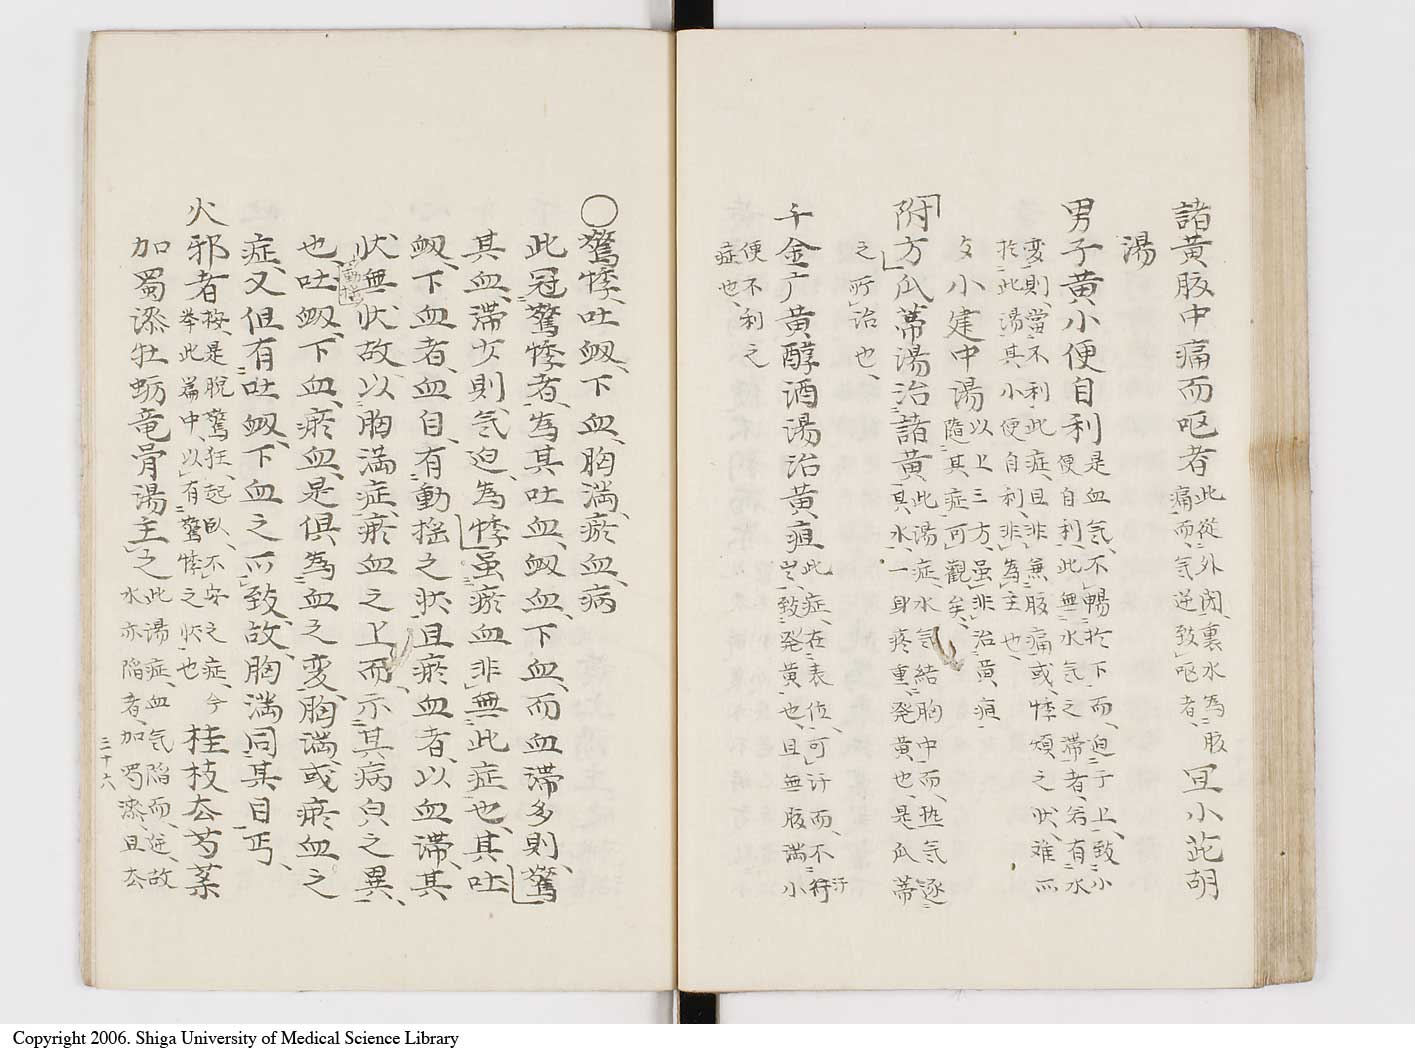 諸黄腹中痛而呕者此從外閉、裏水為腹痛而気逆致呕者、宜小茈胡
湯
男子黄小便自利是血気、不暢於下而、迫于上、致小便自利、此無水気之滞者、若有水
変則、當不利、此症、且非無腹痛或、悸煩之状、难而
於此湯、其小便自利、非為主也、
小建中湯以上三方、虽非治黄疸隨其症可觀矣、
附方瓜蒂湯治諸黄此湯症、水気結胸中而、热気逐具水、一身疼重、発黄也、是瓜蒂
之所治也、
千金广黄醇酒湯治黄疸此症、在表位、可汗而、不行汗岂致発黄也、且無腹満小
便不利之
症也、
〇驚悸、吐衂、下血、胸満、瘀血、病
此冠驚悸者、為其吐血、衂血、下血、而血滞多則、驚
其血、滞少則、気迫、為悸、虽瘀血非無此症也、其吐
衂、下血者、血自、有動揺之状、且瘀血者、以血滞、其
状無状、故、以胸満症、瘀血之上而、示其病皃之異、
動揺
也、吐衂、下血、瘀血、是俱、為血之変、胸満、或瘀血之
症、又但有吐衂、下血之所致、故、胸満同其目丐、
火邪者按、是脫驚狂、起卧、不安之症、今举此篇中、以有驚悸之状也桂枝去芍薬
加蜀漆牡蛎竜骨湯主之此湯症、血気陷而、逆、故水亦陷者、加蜀漆、且去
三十六
Copyright 2006. Shiga University of Medical Science Library